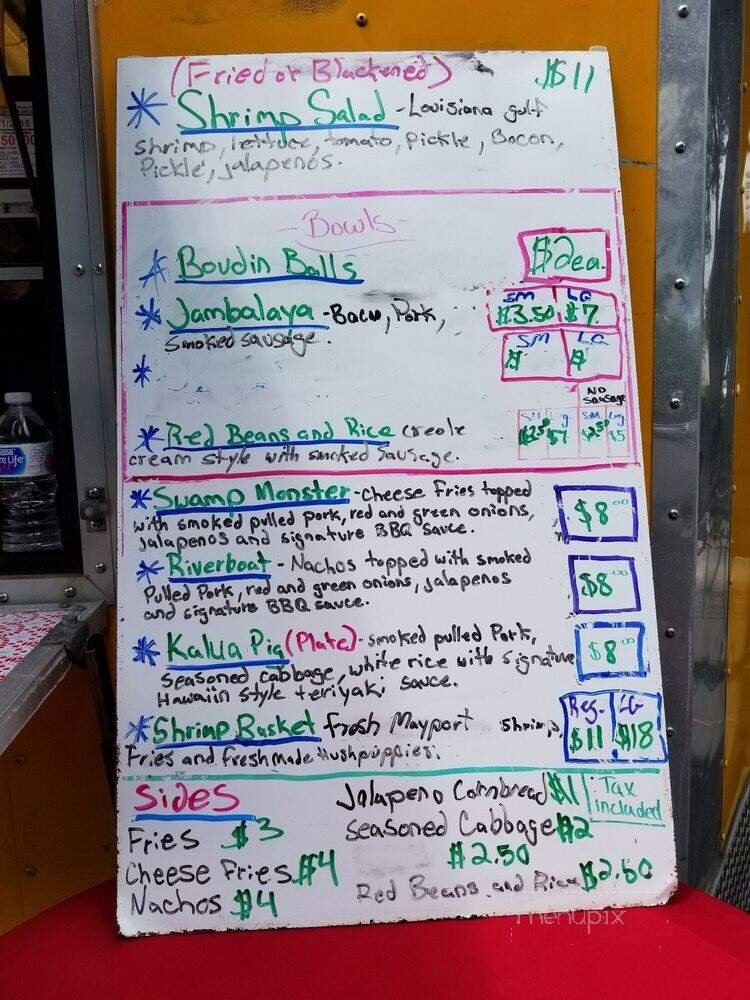 (Fried or Blackened) $11
* Shrimp Salad - Louisiana gulf
shrimp, lettuce, tomato, pickle, Bacon,
Pickle, jalapenos.
- Bowls -
* Boudin Balls $2ea.
* Jambalaya - Bacon, Pork,
smoked sausage.
SM LG
$3.50 $7
* SM LG
$ $
NO
Sausage
* Red Beans and Rice creole
cream style with smoked sausage.
SM Lg. SM Lrg
$7 $2.50 $5
* Swamp Monster - Cheese Fries topped
with smoked pulled pork, red and green onions,
jalapenos and signature BBQ sauce.
$8.00
* Riverboat - Nachos topped with smoked
Pulled Pork, red and green onions, jalapenos
and signature BBQ sauce.
$8.00
* Kalua Pig (Plate) - smoked pulled Pork,
seasoned cabbage, white rice with signature
Hawaiin style teriyaki sauce.
$8.00
* Shrimp Basket Fresh Mayport shrimp,
Fries and fresh made Hushpuppies.
Reg. LG
$11 $18
Sides
Fries $3
Cheese Fries $4
Nachos $4
Jalapeno Cornbread $1
Seasoned Cabbage $2
$2.50
Red Beans and Rice $2.50
Tax
included
menupix